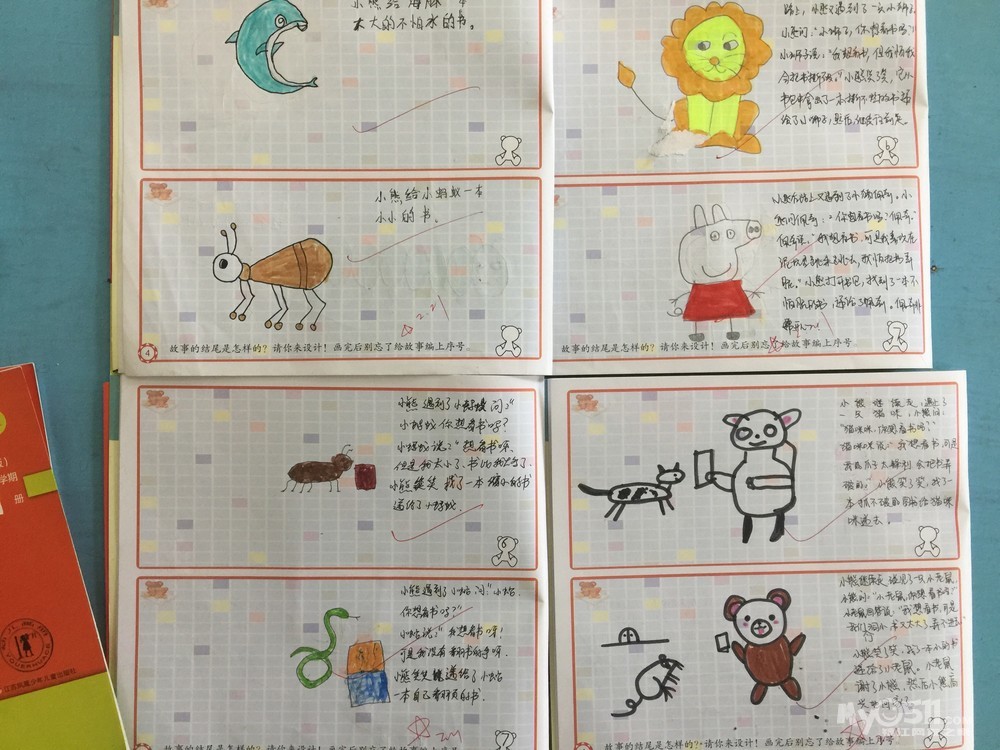 小熊给海豚一本
大大的不怕水的书。
小熊给小蚂蚁一本
小小的书。
2.21
4
故事的结尾是怎样的?请你来设计!画完后别忘了给故事编上序号。
路上,小熊又遇到了一只小狮子,
小熊问:“小狮子,你想看书吗?”
小狮子说:“我想看书,但我怕我
会把书撕破。”小熊笑了笑,它从
书包里拿出了一本撕不烂的书
给了小狮子,
6
小熊问佩奇:“你想看书吗?佩奇。”
佩奇说:“我想看书,可是我喜欢在
泥坑里跳来跳去,我怕把书弄
脏。”小熊打开书包,找到了一本不
怕脏的书,送给了佩奇。佩奇非
常开心!
7
故事的结尾是怎样的?请你来设计!画完后别忘给故事编上序号。
小熊遇到了小蚂蚁问:“
小蚂蚁你想看书吗?
小蚂蚁说:“想看书呀,
但是我太小了,书比我大多了.
小熊笑笑找了一本缩小的书
送给了小蚂蚁
小熊遇到了小蛇问:“小蛇,
你想看书吗?”
小蛇说:“我想看书呀!
可是我没有翻书的手呀.
小熊笑笑送给了小蛇
一本自己翻页的书.
故事的结尾是怎样的?请你来设计!画完后别忘了给故事编上序号
一只猫咪,小熊问:
“猫咪咪,你想看书吗?”
猫咪咪说:“我想看书,可是
我的爪子太锋利会把书弄
破的。”小熊笑了笑,找了一
本抓不破的书给猫咪
咪送去。
小熊问:“小老鼠,你想看书吗?”
“我想看书,可是
小熊笑了笑,找了一本小的书
送给了小老鼠。小老鼠
谢了小熊,然后小熊
故事的结尾是怎样的?请你来设计!画完后别忘了给故事编上序号
学期
册
江苏凤凰少年儿童出版社
MY0511